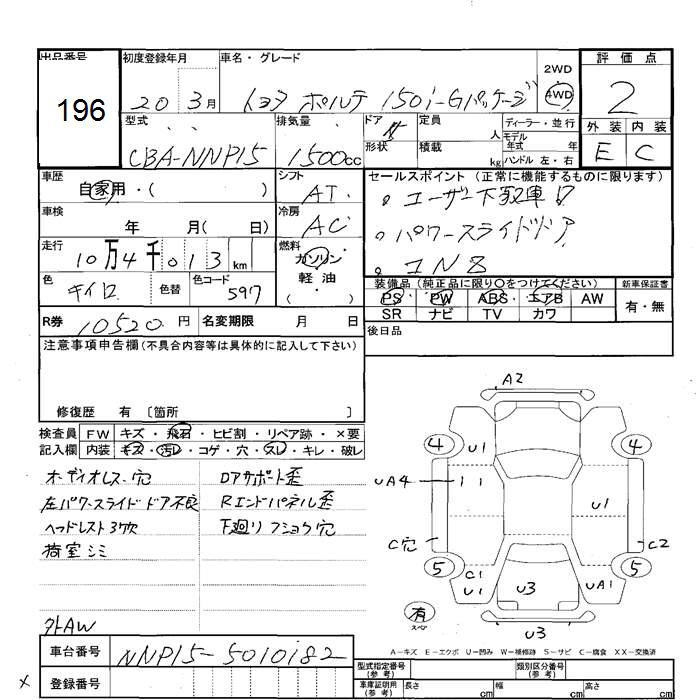 出品番号 初度登録年月 車名・グレード 評価点
196
20 3月 トヨタ ポルテ 150i-Gパッケージ 2WD 4WD 2
型式 排気量 ドア 定員 人 ディーラー・並行 外装 内装
CBA-NNP15 1500cc 形状 積載 kg モデル年式 年 ハンドル 左・右 E C
車歴 自家用・( ) シフト AT
セールスポイント (正常に機能するものに限ります)
。ユーザー下取車!
。パワースライドドア
車検 年 月( 日) 冷房 AC
走行 10万4千013km 燃料 ガソリン 軽油 ( )
色 キイロ 色替 色コード 5917
装備品 (純正品に限り○をつけてください) 新車保証書
PS PW ABS・エアB AW 有・無
SR ナビ TV カワ
R券 10520円 名変期限 月 日
後日品
注意事項申告欄(不具合内容等は具体的に記入して下さい)
修復歴 有〔箇所 〕
検査員 FW キズ・飛石・ヒビ割・リペア跡・×要
記入欄 内装 キズ・汚レ・コゲ・穴・スレ・キレ・破レ
オーディオレス・穴
左パワースライドドア不良
ヘッドレスト3ケ欠
荷室シミ
外AW
Dアサポート歪
Rエンドパネル歪
下廻りフショウ穴
A2
4 U1 4
UA4 U1
C穴 C2
5 C1 U1 U3 UA1 5
有 スペア
U3
A-キズ E-エクボ U-凹み W-補修跡 S-サビ C-腐食 XX-交換済
車台番号 NNP15-5010182
登録番号
×
型式指定番号(参考) 類別区分番号(参考)
車庫証明用(参考) 長さ cm 幅 cm 高さ cm